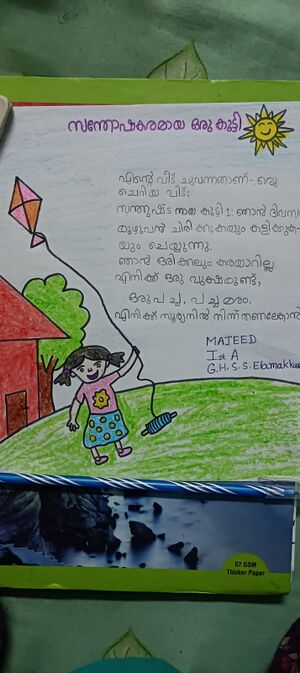 സന്തോഷകരമായ ഒരു കുട്ടി
എന്റെ വീട് ചുവന്നതാണ് - ഒരു
ചെറിയ വീട്;
സന്തുഷ്ടമായ കുട്ടി 1: ഞാൻ ദിവസ
മുഴുവൻ ചിരിക്കുകയും കളിക്കുക-
യും ചെയ്യുന്നു.
ഞാൻ ഒരിക്കലും കരയാറില്ല
എനിക്ക് ഒരു വൃക്ഷമുണ്ട്,
ഒരു പച്ച, പച്ച മരം.
എനിക്ക് സൂര്യനിൽ നിന്ന്
MAJEED
Ist A
G.H.S.S. Elamakka
57 GSM
Thicker Paper